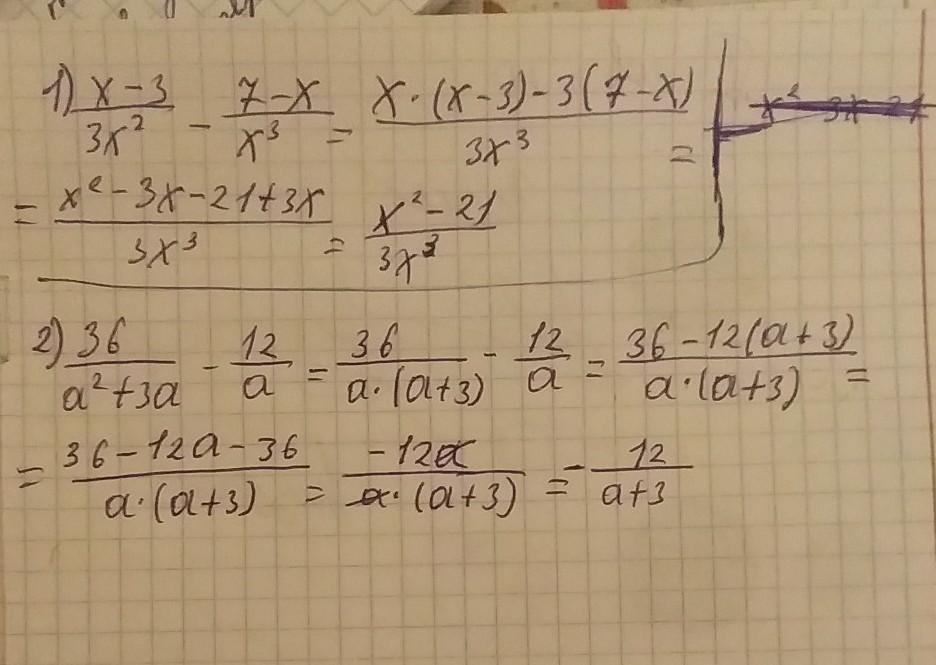 1) (x-3)/(3x²) - (7-x)/x³ = (x·(x-3)-3(7-x))/(3x³) =
= (x²-3x-21+3x)/(3x³) = (x²-21)/(3x³)
2) 36/(a²+3a) - 12/a = 36/(a·(a+3)) - 12/a = (36-12(a+3))/(a·(a+3)) =
= (36-12a-36)/(a·(a+3)) = (-12a)/(a·(a+3)) = - 12/(a+3)